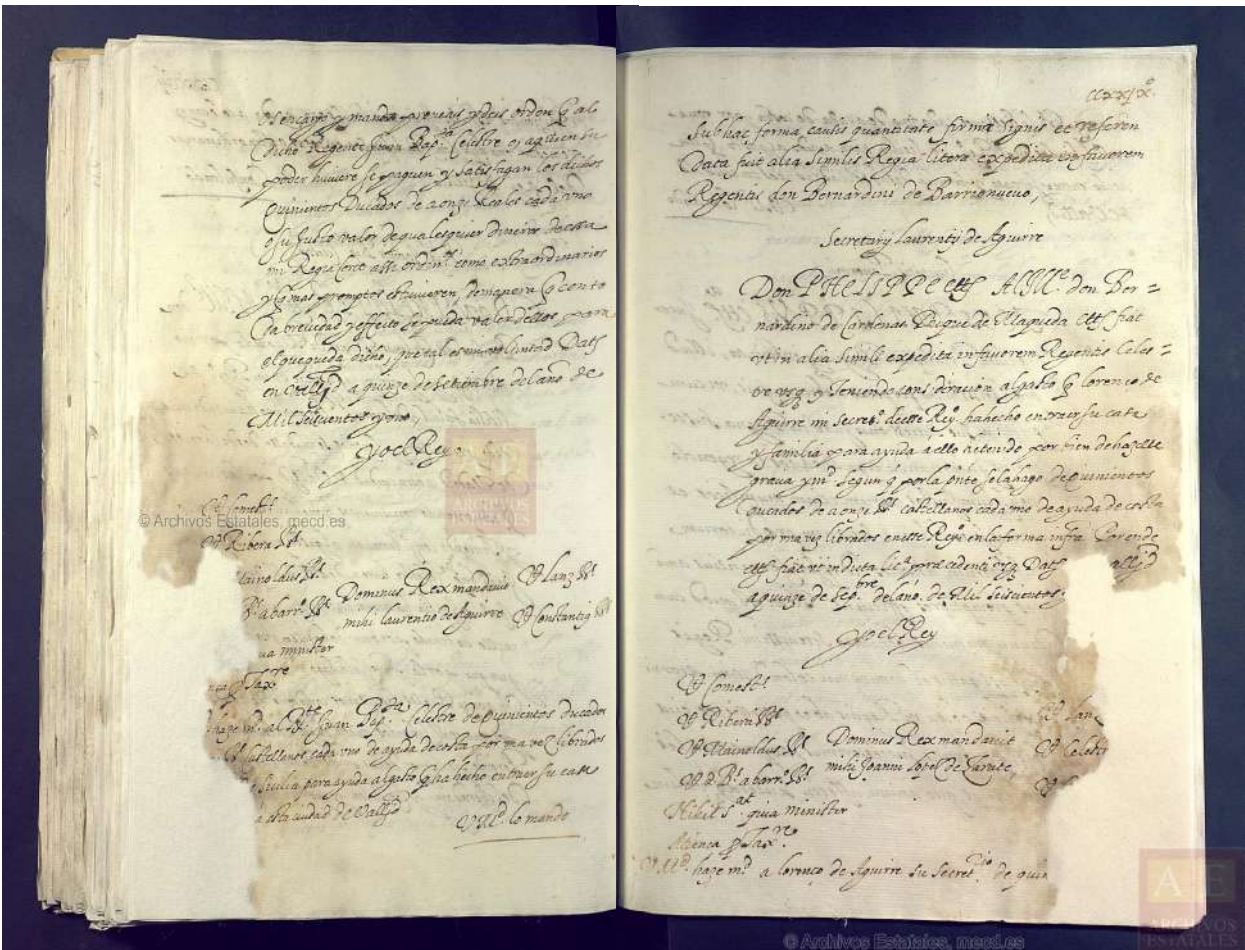 os encargo y mando proveais y deis orden q̃ al
dicho Regente Juan Bapᵗᵃ Celestre o, a quien su
poder huviere se paguen y satisfagan los dichos
quinientos Ducados de a onze Reales cada uno
o su justo valor de qualesquier dineros de essa
mi Regia Corte assi ordinʳⁱᵒˢ como extraordinarios
y q̃ mas promptos estuvieren, de manera q̃ con to
da brevedad y effeto se pueda valer dellos para
el que queda dicho, que tal es mi voluntad Datt̃
en Vallᵈ a quinze de Setiembre del año de
Mil seiscientos y uno,
yo el Rey
Vᵗ Comesᵗ
Vᵗ Ribera Rˢ
Mainoldus Rˢ
Dominus Rex mandavit
mihi laurentio de Aguirre
Vᵗ Lanz Rˢ
Vᵗ Constantiᵍ Rˢ
abarrᵒ Rˢ
minister
Taxʳʳᵉ
haze mᵈ al Rᵗᵉ Juan Bapᵗᵃ Celestre de quinientos ducados
castellanos cada uno de ayuda de costa por una vez librados
Sicilia para ayuda al gasto q̃ ha hecho en traer su casa
a esta ciudad de Vallᵈ
V Mᵈ lo mando
CCxxjxº.
Sub hac forma, cautis quantitate firma signis et referen
Data fuit alia similis Regia litera expedita in favorem
Regentis don Bernardini de Barrionuevo,
Secretarij Laurentij de Aguirre
Don PHELIPPE ett̃ Al Illᵉ. don Ber=
nardino de Cardenas Duque de Maqueda ett̃ fiat
ut in alia simili expedita in favorem Regentis Celes=
tre usq̃ y Teniendo consideracion al gasto q̃ lorenço de
Aguirre mi Secretᵒ deesse Reyᵒ ha hecho en traer su casa
y familia para ayuda á ello he tenido por bien de hazelle
gracia y mᵈ segun q̃ por la pñte se la hago de quinientos
ducados de a onze Rˢ castellanos cada uno de ayuda de costa
por una vez librados en esse Reyᵒ en la forma infra Por ende
ett̃ fiat ut in dicta licᵃ praecedenti usq̃ Datt̃ Vallᵈ
a quinze de Sepᵇʳᵉ del año. de Mil seiscientos
yo el Rey
Vᵗ Comesᵗ
Vᵗ Ribera Rˢ
Vᵗ Mainoldus Rˢ
Dominus Rex mandavit
mihi Joanni lopez de Zarate,
Vᵗ Lanz
Vᵗ Celest
Vᵗ D Bᵗ abarrᵒ Rˢ
Nihil Sᵃᵗ quia minister
Atiença p Taxʳᵉ
V Mᵈ. haze mᵈ a lorenço de Aguirre su Secretʳⁱᵒ de quin
© Archivos Estatales, mecd.es
AE
ARCHIVOS
ESTATALES
© Archivos Estatales, mecd.es
AE
ARCHIVOS
ESTATALES